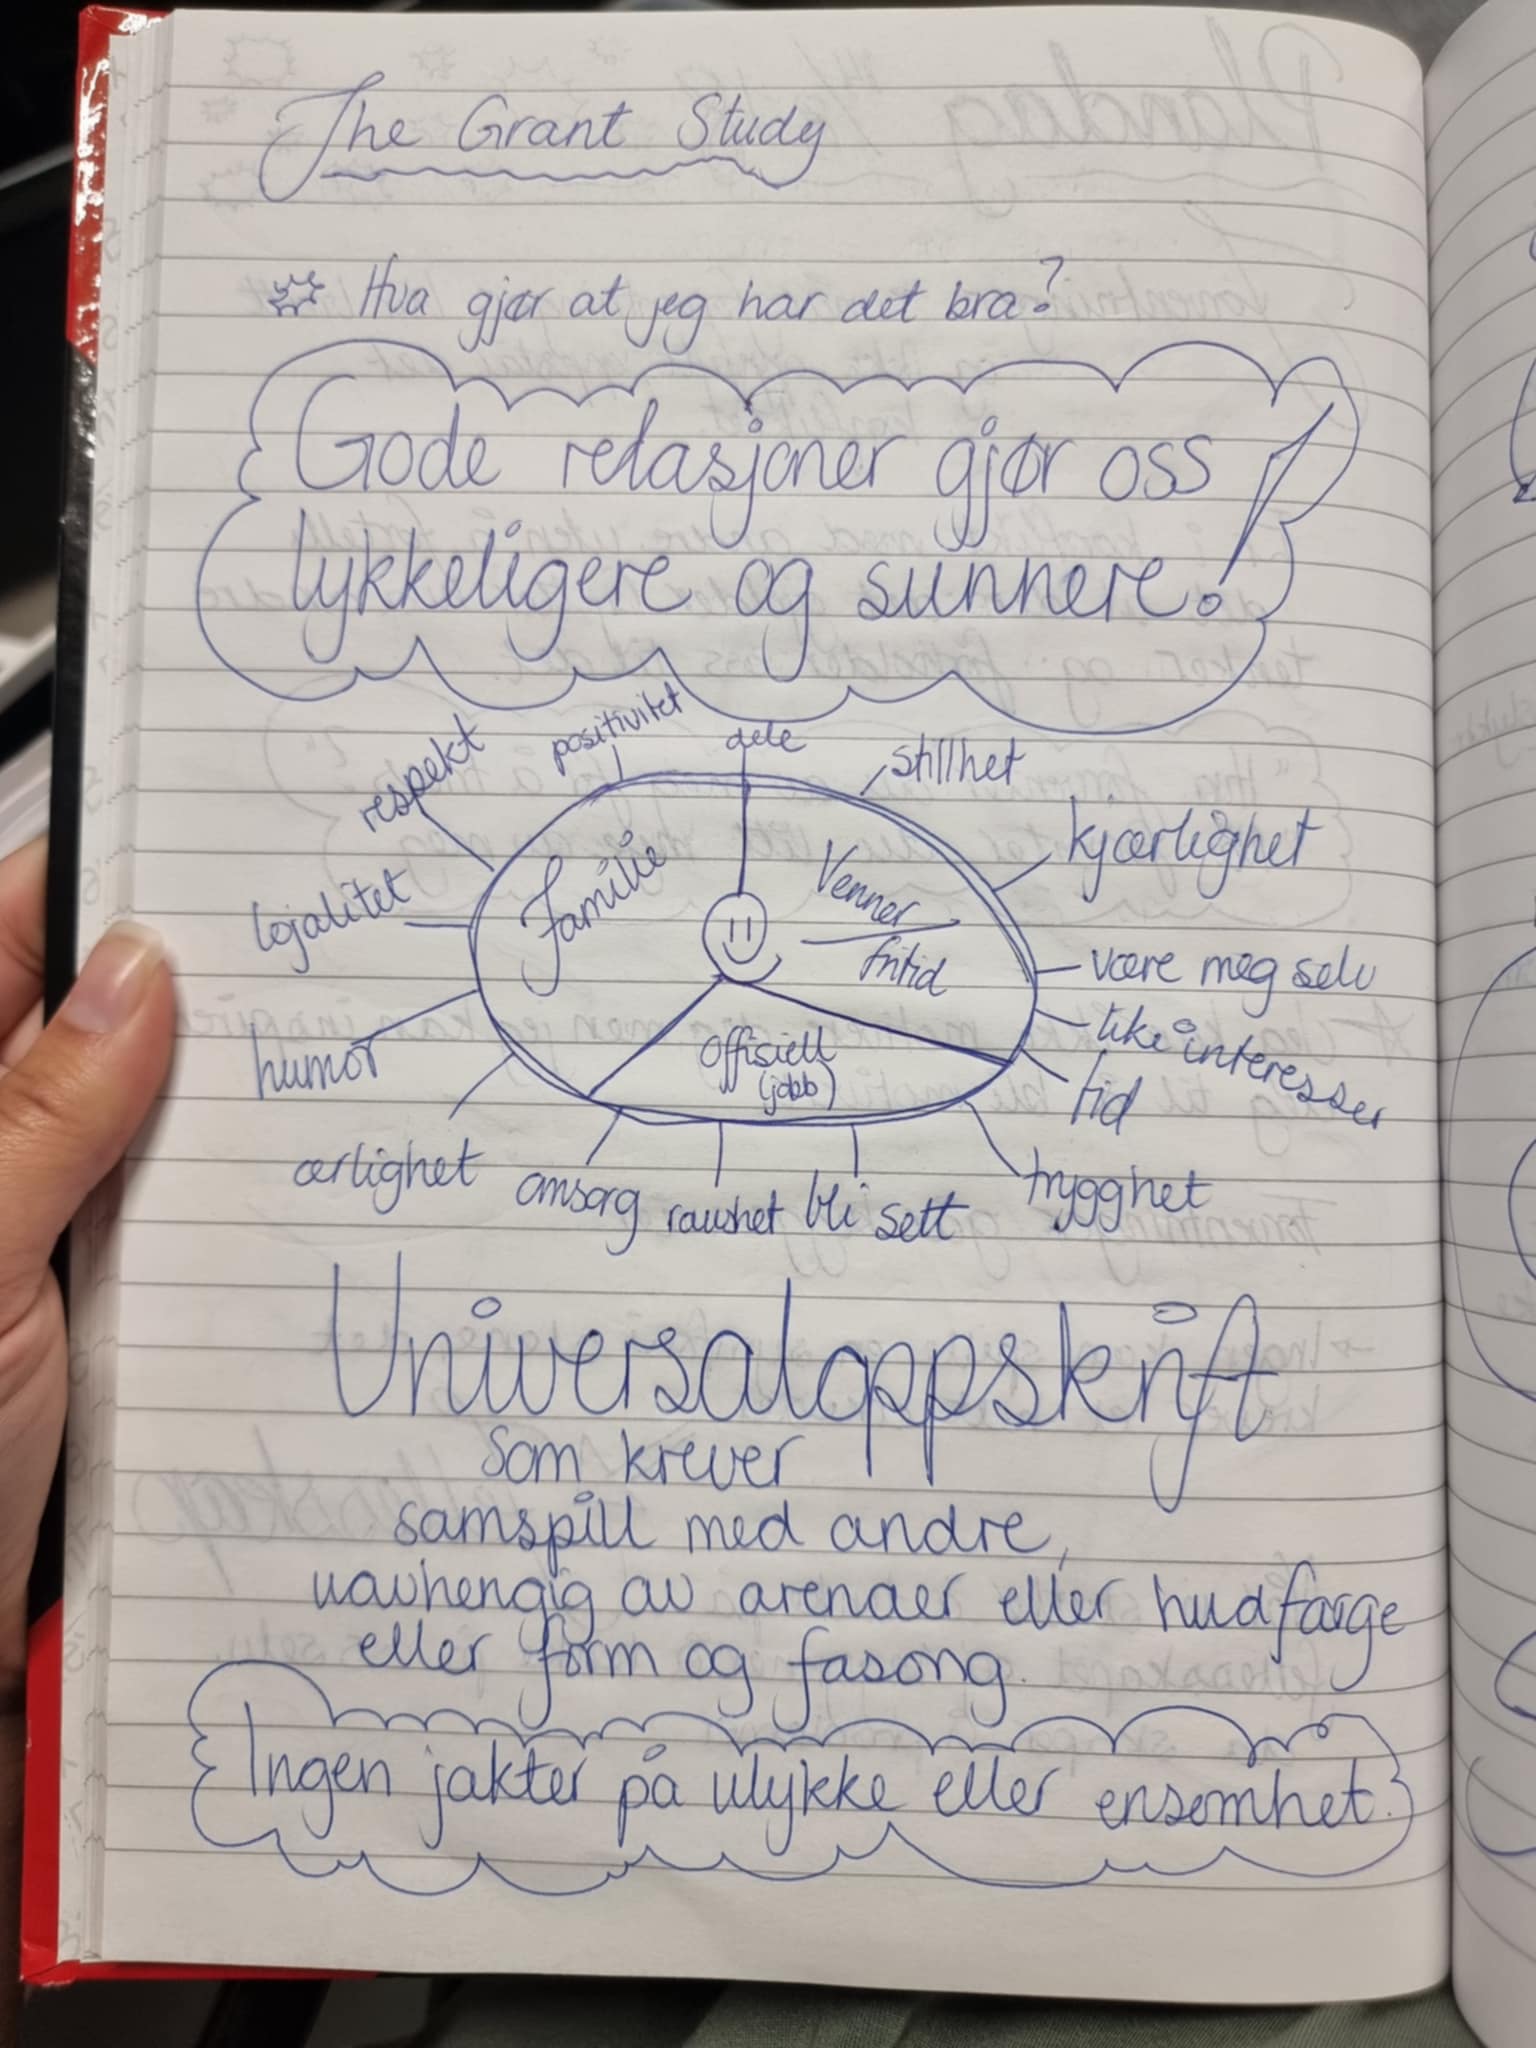 The Grant Study
Hva gjør at jeg har det bra?
Gode relasjoner gjør oss
lykkeligere og sunnere!
positivitet
dele
stillhet
respekt
kjærlighet
lojalitet
Familie
Venner
fritid
være meg selv
like interesser
tid
humor
Offisiell
(jobb)
ærlighet
omsorg
raushet
bli sett
trygghet
Universaloppskrift
som krever
samspill med andre,
uavhengig av arenaer eller hudfarge
eller form og fasong.
Ingen jakter på ulykke eller ensomhet.